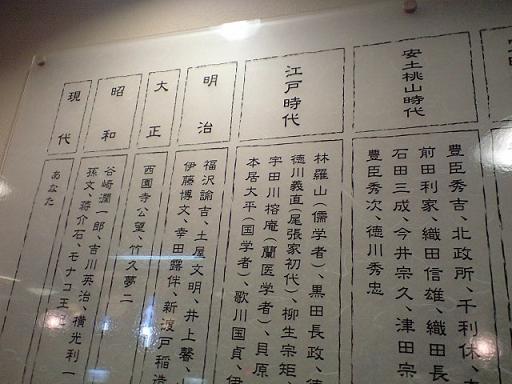 安土桃山時代
豊臣秀吉、北政所、千利休、
前田利家、織田信雄、織田長
石田三成、今井宗久、津田宗
豊臣秀次、徳川秀忠
江戸時代
林羅山(儒学者)、黒田長政、
徳川義直(尾張家初代)、柳生宗矩、
宇田川榕庵(蘭医学者)、貝原
本居大平(国学者)、歌川国貞、伊
明治
福沢諭吉、土屋文明、井上馨、
伊藤博文、幸田露伴、新渡戸稲造
大正
西園寺公望、竹久夢二
昭和
谷崎潤一郎、吉川英治、横光利一
孫文、蒋介石、モナコ王妃
現代
あなた